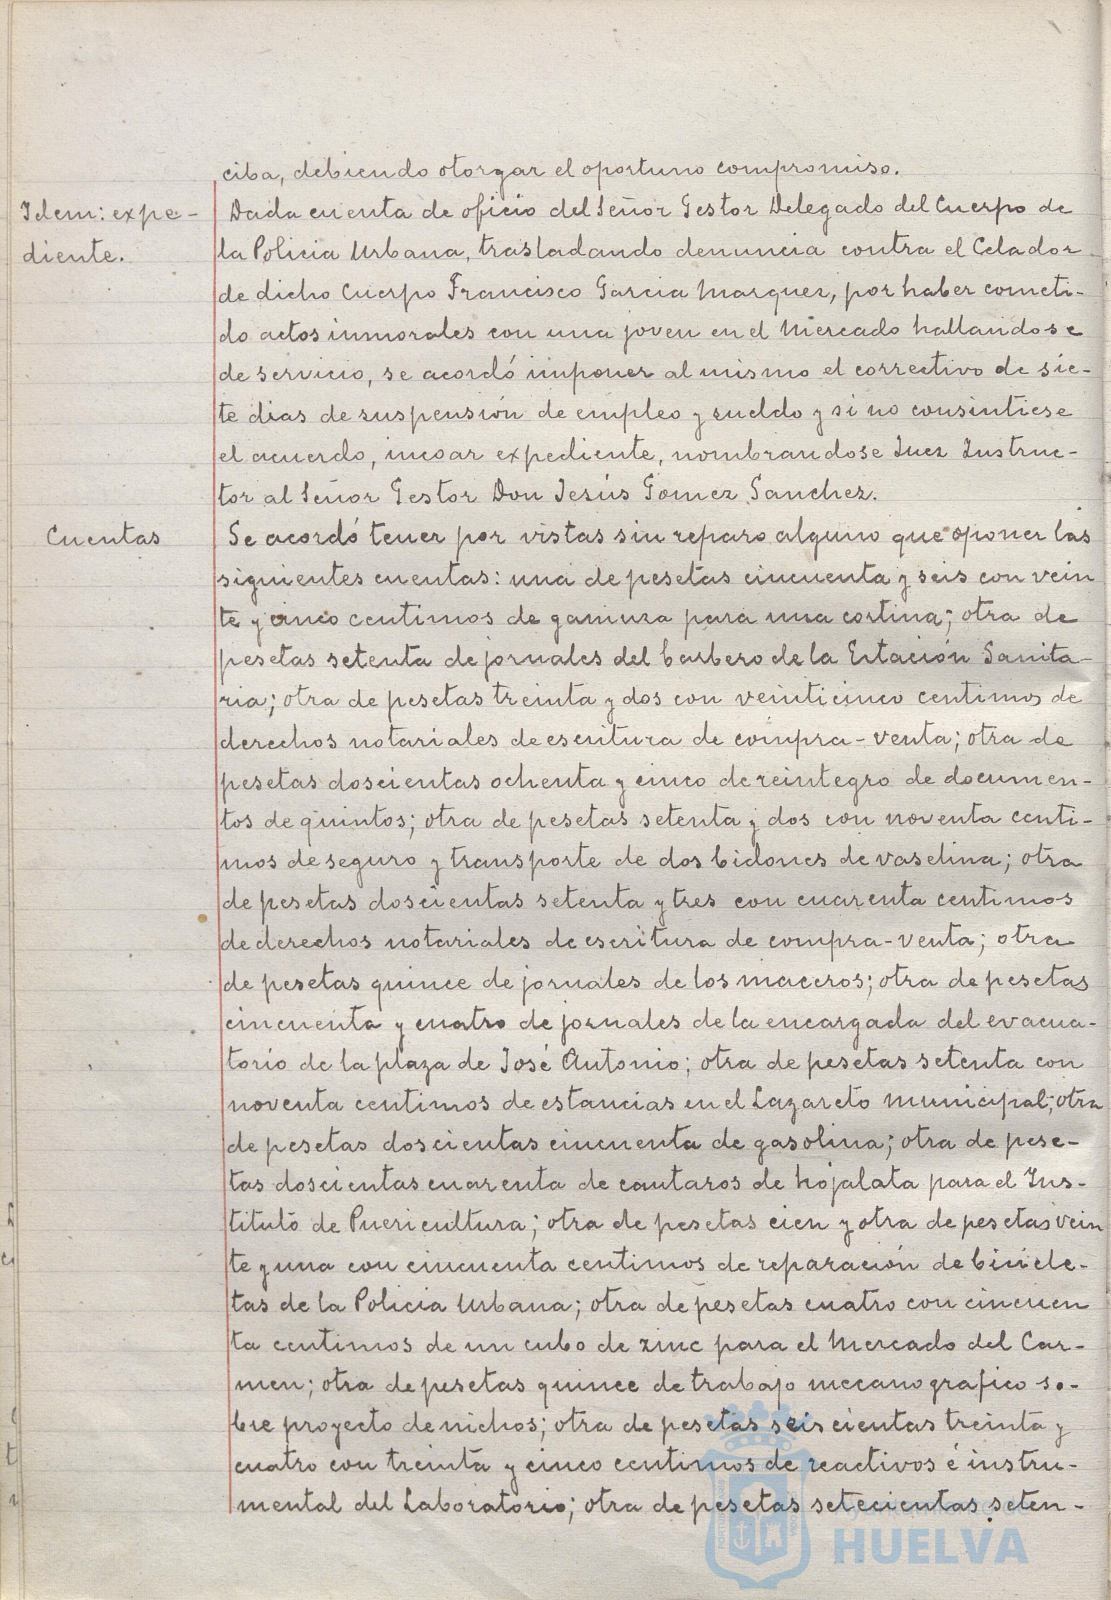 ciba, debiendo otorgar el oportuno compromiso.
Idem: expe-
diente.
Dada cuenta de oficio del Señor Gestor Delegado del Cuerpo de
la Policia Urbana, trasladando denuncia contra el Celador
de dicho Cuerpo Francisco Garcia Marquez, por haber cometi-
do actos inmorales con una joven en el Mercado hallandose
de servicio, se acordó imponer al mismo el correctivo de sie-
te dias de suspensión de empleo y sueldo y si no consintiese
el acuerdo, incoar expediente, nombrandose Juez Instruc-
tor al Señor Gestor Don Jesús Gomez Sanchez.
Cuentas
Se acordó tener por vistas sin reparo alguno que oponer las
siguientes cuentas: una de pesetas cincuenta y seis con vein
te y cinco centimos de gamuza para una cortina; otra de
pesetas setenta de jornales del barbero de la Estación Sanita-
ria; otra de pesetas treinta y dos con veinticinco centimos de
derechos notariales de escritura de compra-venta; otra de
pesetas doscientas ochenta y cinco de reintegro de documen-
tos de quintos; otra de pesetas setenta y dos con noventa centi-
mos de seguro y transporte de dos bidones de vaselina; otra
de pesetas doscientas setenta y tres con cuarenta centimos
de derechos notariales de escritura de compra-venta; otra
de pesetas quince de jornales de los maceros; otra de pesetas
cincuenta y cuatro de jornales de la encargada del evacua-
torio de la plaza de José Antonio; otra de pesetas setenta con
noventa centimos de estancias en el Lazareto municipal; otra
de pesetas doscientas cincuenta de gasolina; otra de pese-
tas doscientas cuarenta de cantaros de hojalata para el Ins-
tituto de Puericultura; otra de pesetas cien y otra de pesetas vein
te y una con cincuenta centimos de reparación de bicicle-
tas de la Policia Urbana; otra de pesetas cuatro con cincuen
ta centimos de un cubo de zinc para el Mercado del Car-
men; otra de pesetas quince de trabajo mecanografico so-
bre proyecto de nichos; otra de pesetas seiscientas treinta y
cuatro con treinta y cinco centimos de reactivos é instru-
mental del Laboratorio; otra de pesetas setecientas seten-
Ayuntamiento de
HUELVA